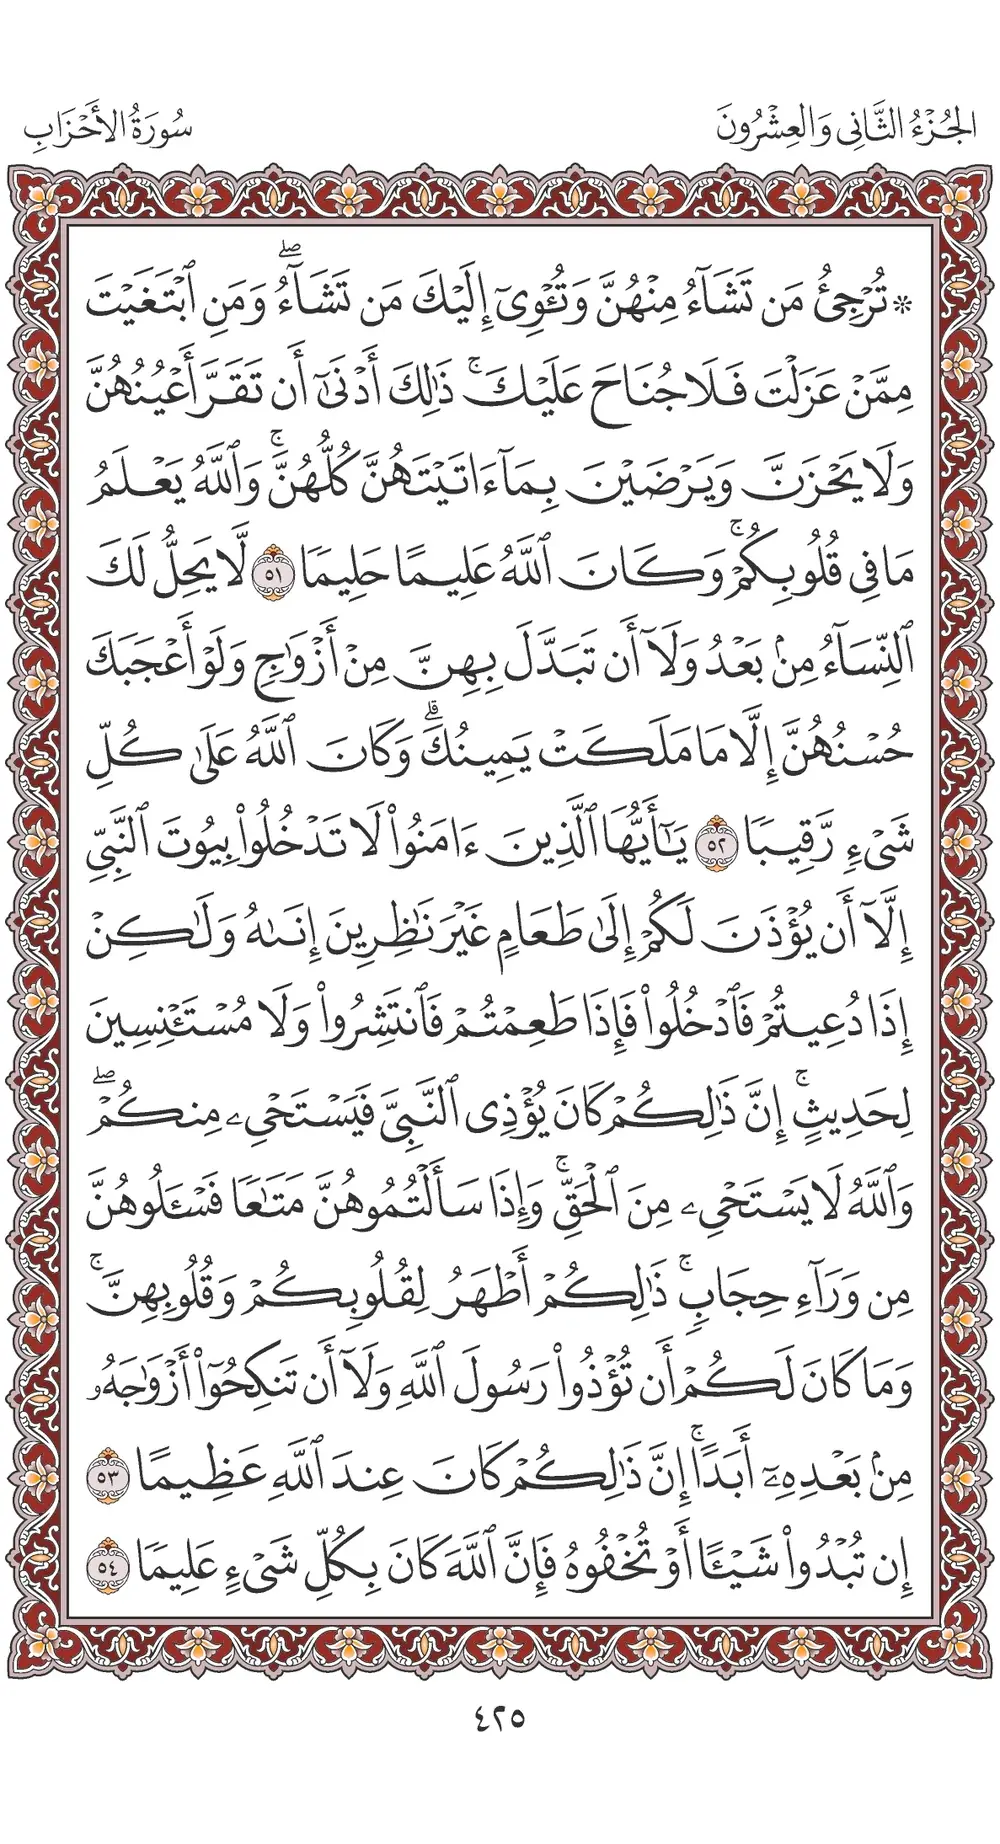 الجُزْءُ الثَّانِي وَالعِشْرُونَ
سُورَةُ الأَحْزَابِ
۞ تُرْجِي مَن تَشَآءُ مِنْهُنَّ وَتُـْٔوِيٓ إِلَيْكَ مَن تَشَآءُۖ وَمَنِ ٱبْتَغَيْتَ
مِمَّنْ عَزَلْتَ فَلَا جُنَاحَ عَلَيْكَۚ ذَٰلِكَ أَدْنَىٰٓ أَن تَقَرَّ أَعْيُنُهُنَّ
وَلَا يَحْزَنَّ وَيَرْضَيْنَ بِمَآ ءَاتَيْتَهُنَّ كُلُّهُنَّۚ وَٱللَّهُ يَعْلَمُ
مَا فِي قُلُوبِكُمْۚ وَكَانَ ٱللَّهُ عَلِيمًا حَلِيمٗا ٥١ لَّا يَحِلُّ لَكَ
ٱلنِّسَآءُ مِنۢ بَعْدُ وَلَآ أَن تَبَدَّلَ بِهِنَّ مِنْ أَزْوَٰجٖ وَلَوْ أَعْجَبَكَ
حُسْنُهُنَّ إِلَّا مَا مَلَكَتْ يَمِينُكَۗ وَكَانَ ٱللَّهُ عَلَىٰ كُلِّ
شَيْءٖ رَّقِيبٗا ٥٢ يَـٰٓأَيُّهَا ٱلَّذِينَ ءَامَنُوا۟ لَا تَدْخُلُوا۟ بُيُوتَ ٱلنَّبِيِّ
إِلَّآ أَن يُؤْذَنَ لَكُمْ إِلَىٰ طَعَامٍ غَيْرَ نَـٰظِرِينَ إِنَىٰهُ وَلَـٰكِنْ
إِذَا دُعِيتُمْ فَٱدْخُلُوا۟ فَإِذَا طَعِمْتُمْ فَٱنتَشِرُوا۟ وَلَا مُسْتَـْٔنِسِينَ
لِحَدِيثٍۚ إِنَّ ذَٰلِكُمْ كَانَ يُؤْذِي ٱلنَّبِيَّ فَيَسْتَحْيِۦ مِنكُمْۖ
وَٱللَّهُ لَا يَسْتَحْيِۦ مِنَ ٱلْحَقِّۚ وَإِذَا سَأَلْتُمُوهُنَّ مَتَـٰعٗا فَسْـَٔلُوهُنَّ
مِن وَرَآءِ حِجَابٖۚ ذَٰلِكُمْ أَطْهَرُ لِقُلُوبِكُمْ وَقُلُوبِهِنَّۚ
وَمَا كَانَ لَكُمْ أَن تُؤْذُوا۟ رَسُولَ ٱللَّهِ وَلَآ أَن تَنكِحُوٓا۟ أَزْوَٰجَهُۥ
مِنۢ بَعْدِهِۦٓ أَبَدًاۚ إِنَّ ذَٰلِكُمْ كَانَ عِندَ ٱللَّهِ عَظِيمًا ٥٣
إِن تُبْدُوا۟ شَيْـًٔا أَوْ تُخْفُوهُ فَإِنَّ ٱللَّهَ كَانَ بِكُلِّ شَيْءٍ عَلِيمٗا ٥٤
٤٢٥